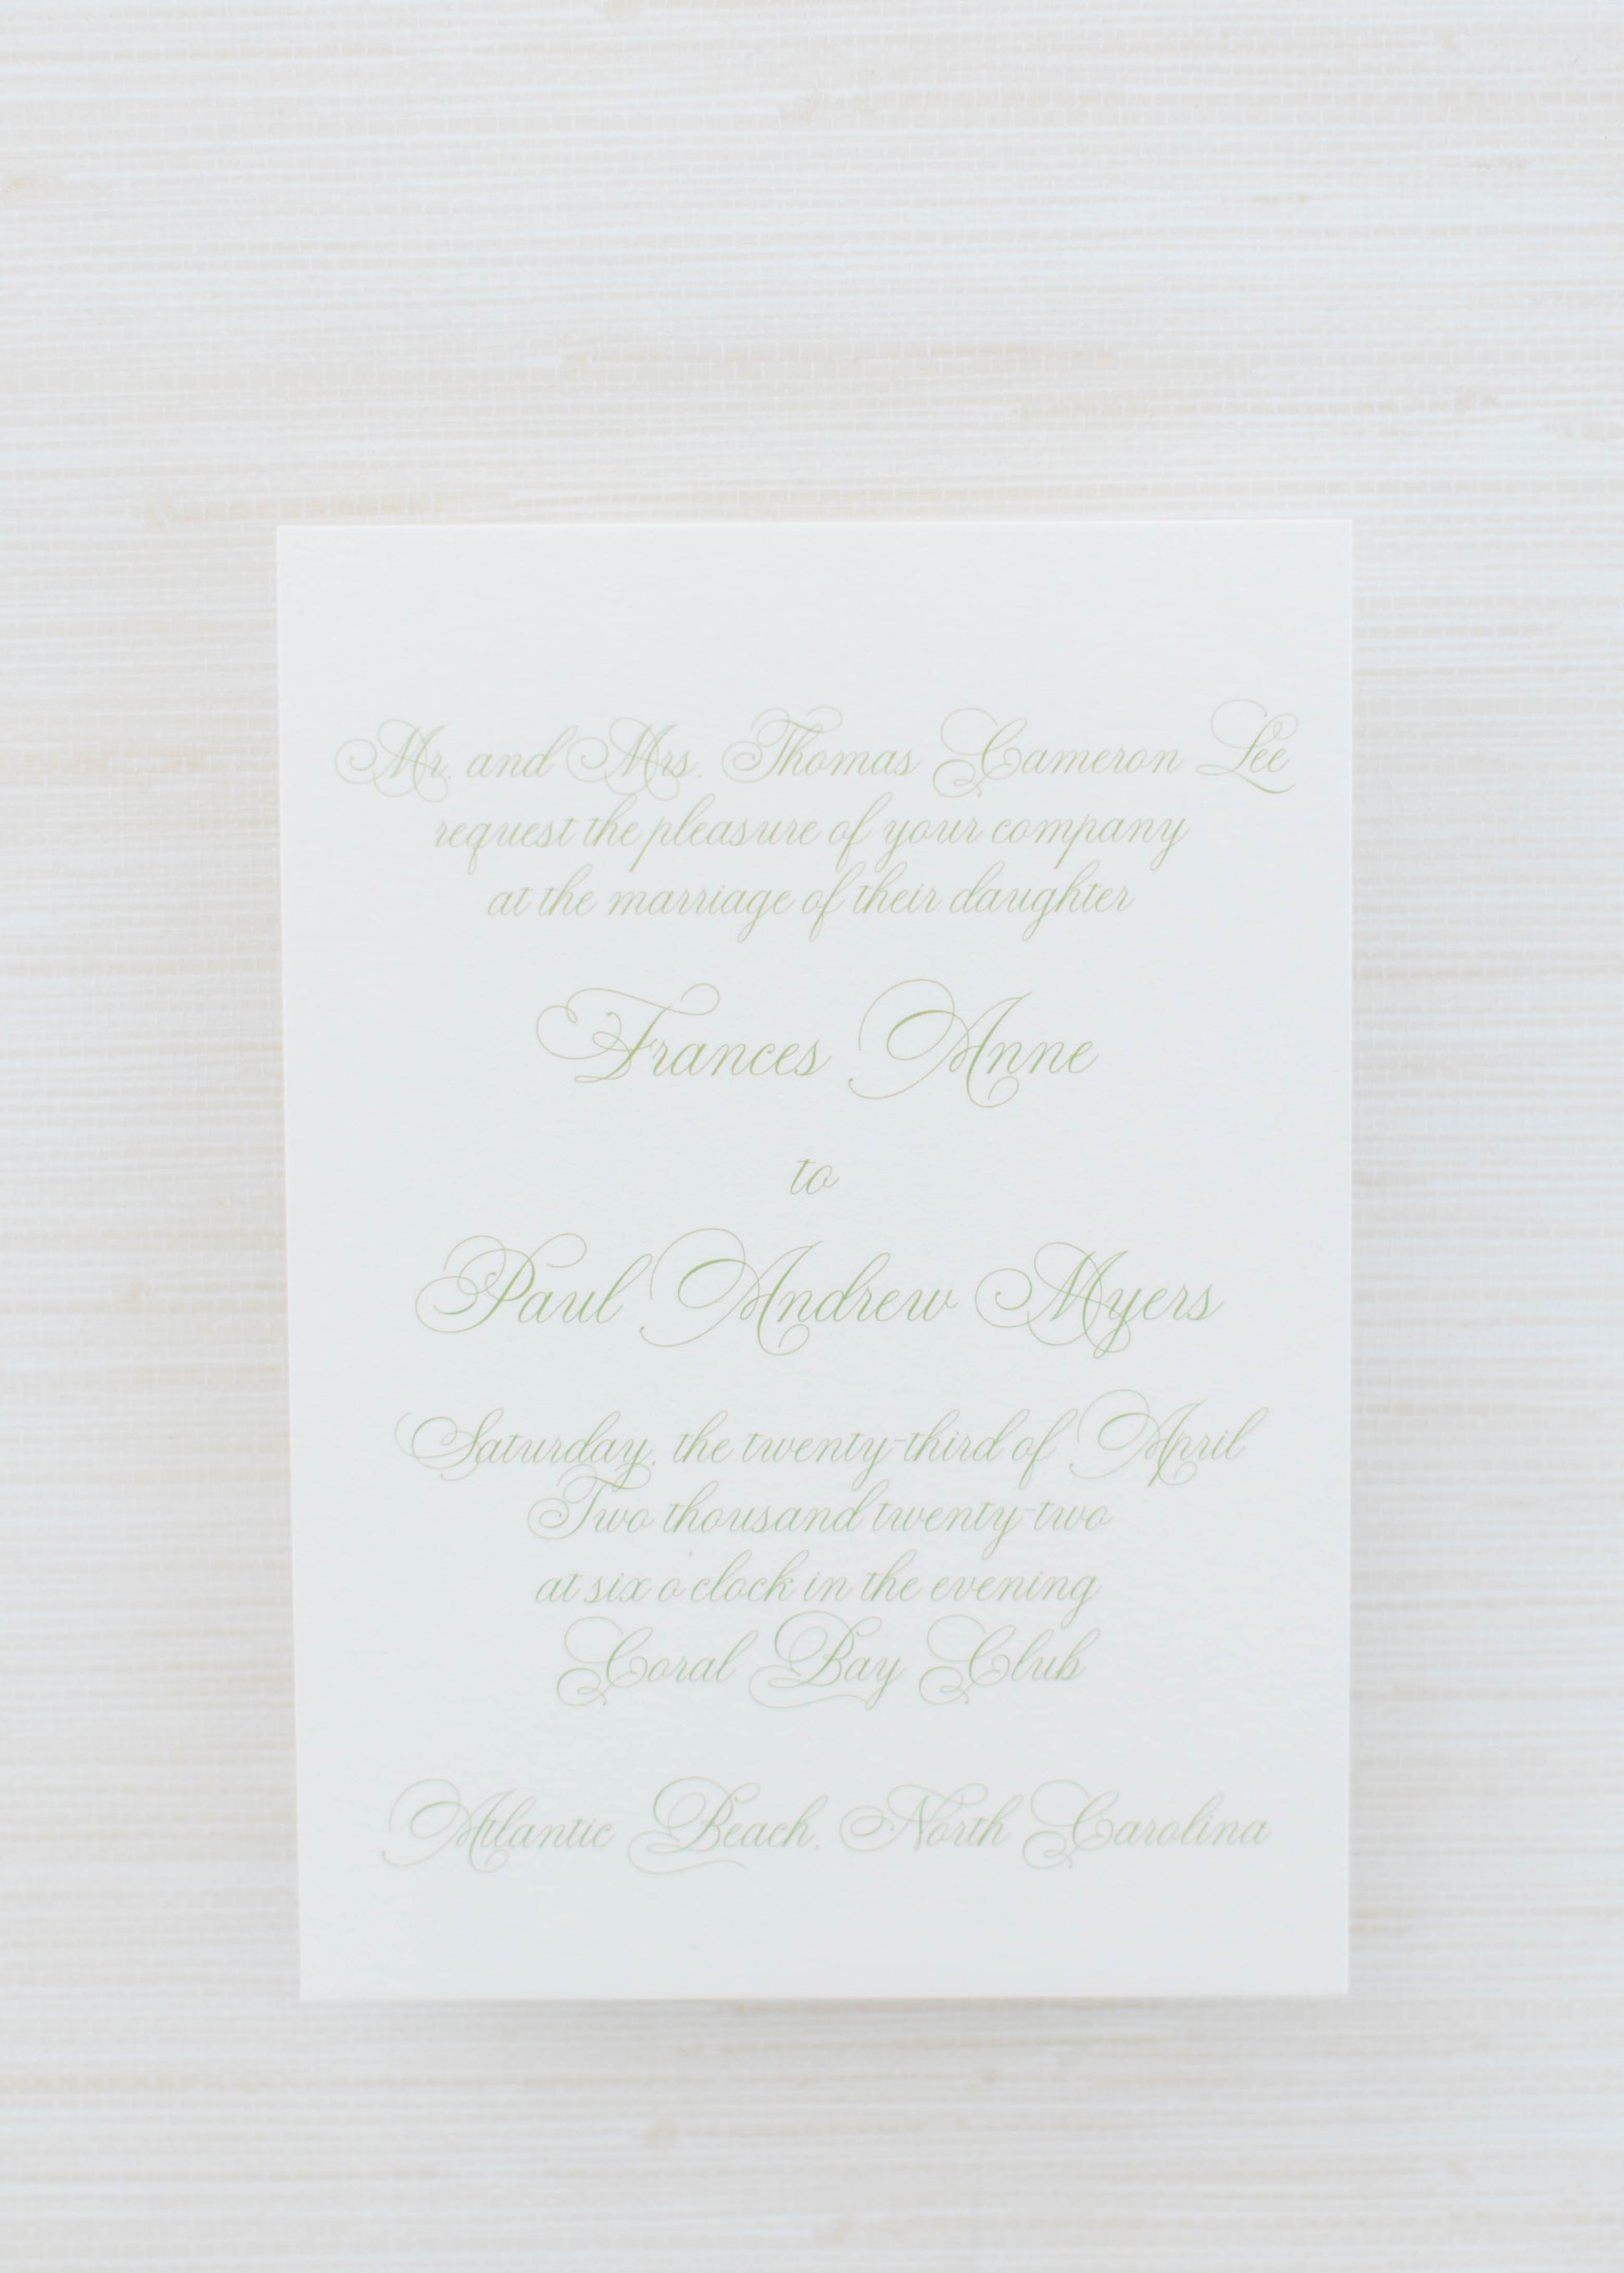 Mr. and Mrs. Thomas Cameron Lee
request the pleasure of your company
at the marriage of their daughter
Frances Anne
to
Paul Andrew Myers
Saturday, the twenty-third of April
Two thousand twenty-two
at six o'clock in the evening
Coral Bay Club
Atlantic Beach, North Carolina